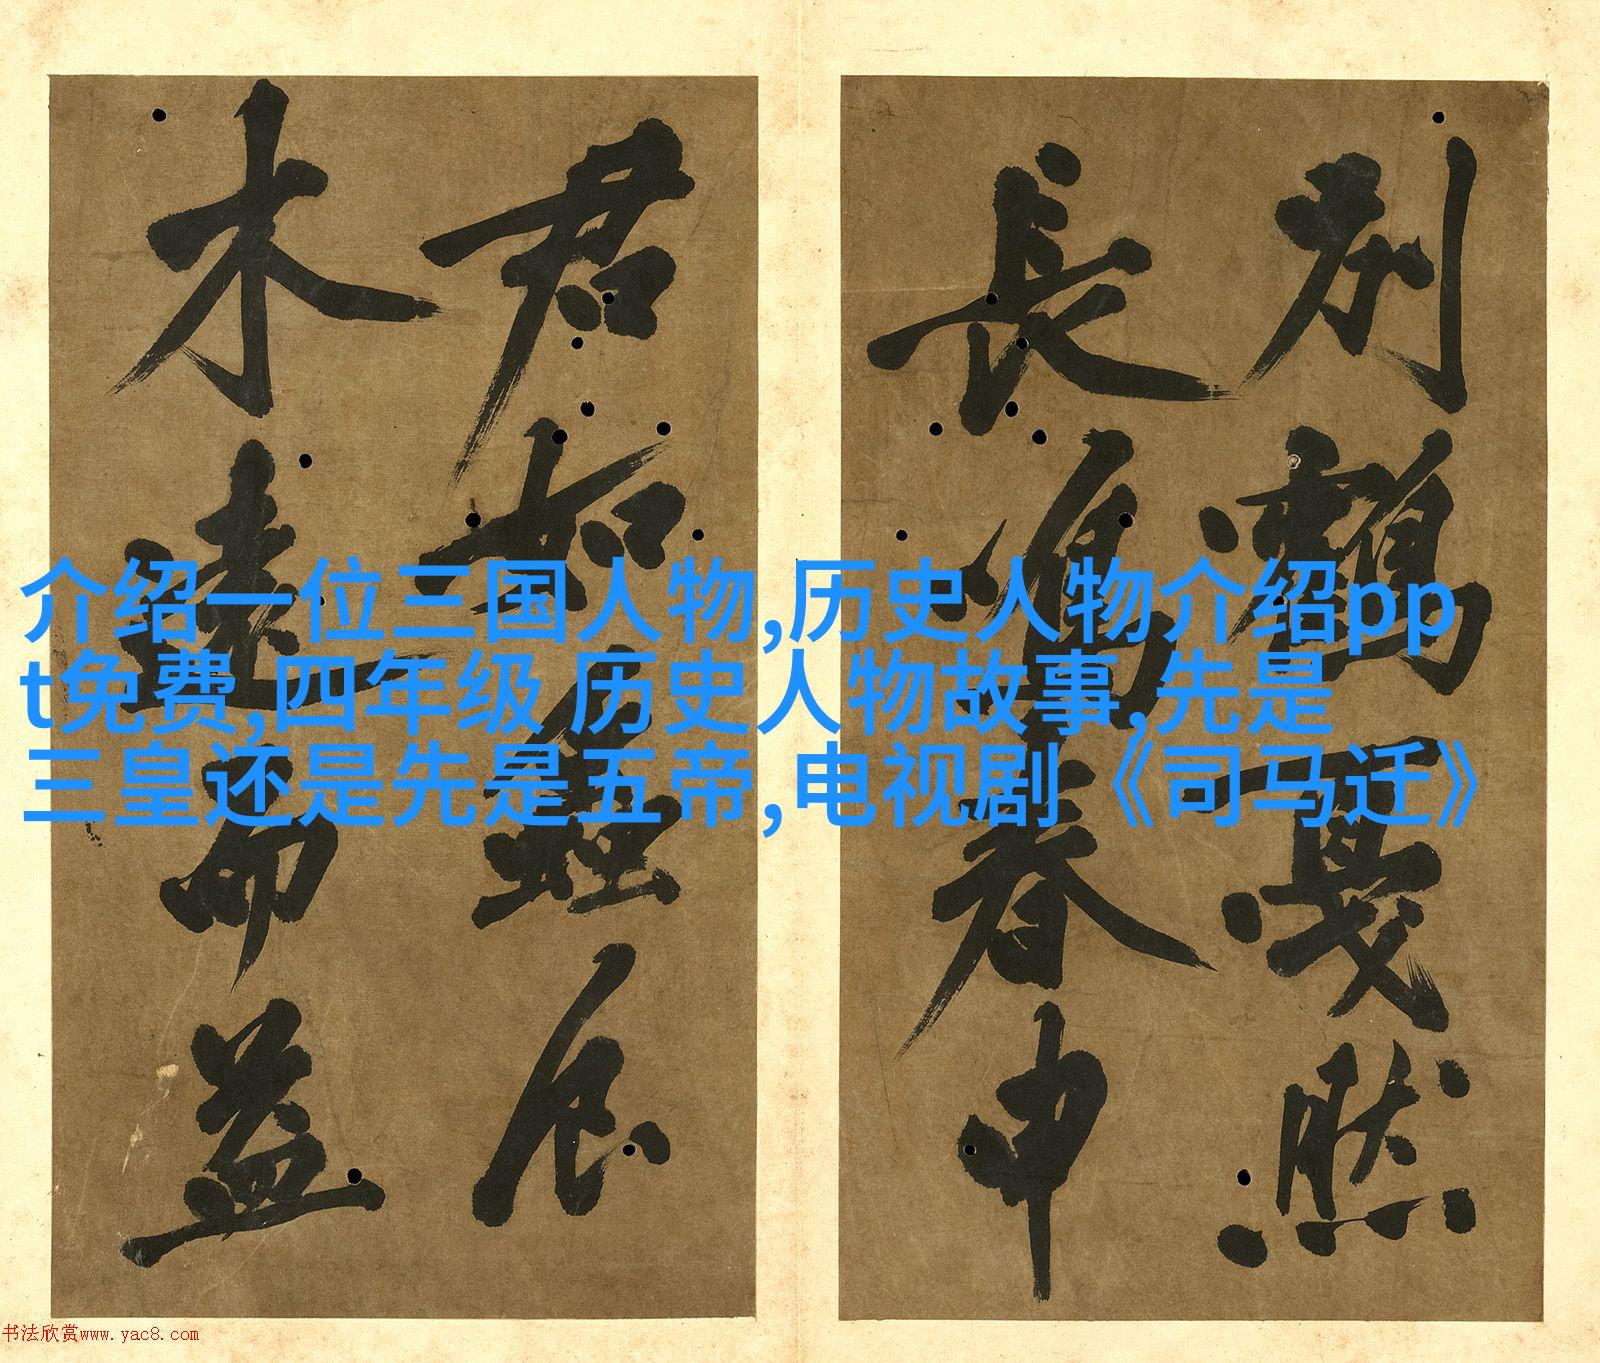 别鶴一戛然
長鳴春申
君如
木遠而益
介绍一位三国人物,历史人物介绍pp
t免费,四年级 历史人物故事,先是
三皇还是先是五帝,电视剧《司马迁》
书法欣赏www.yac8.com